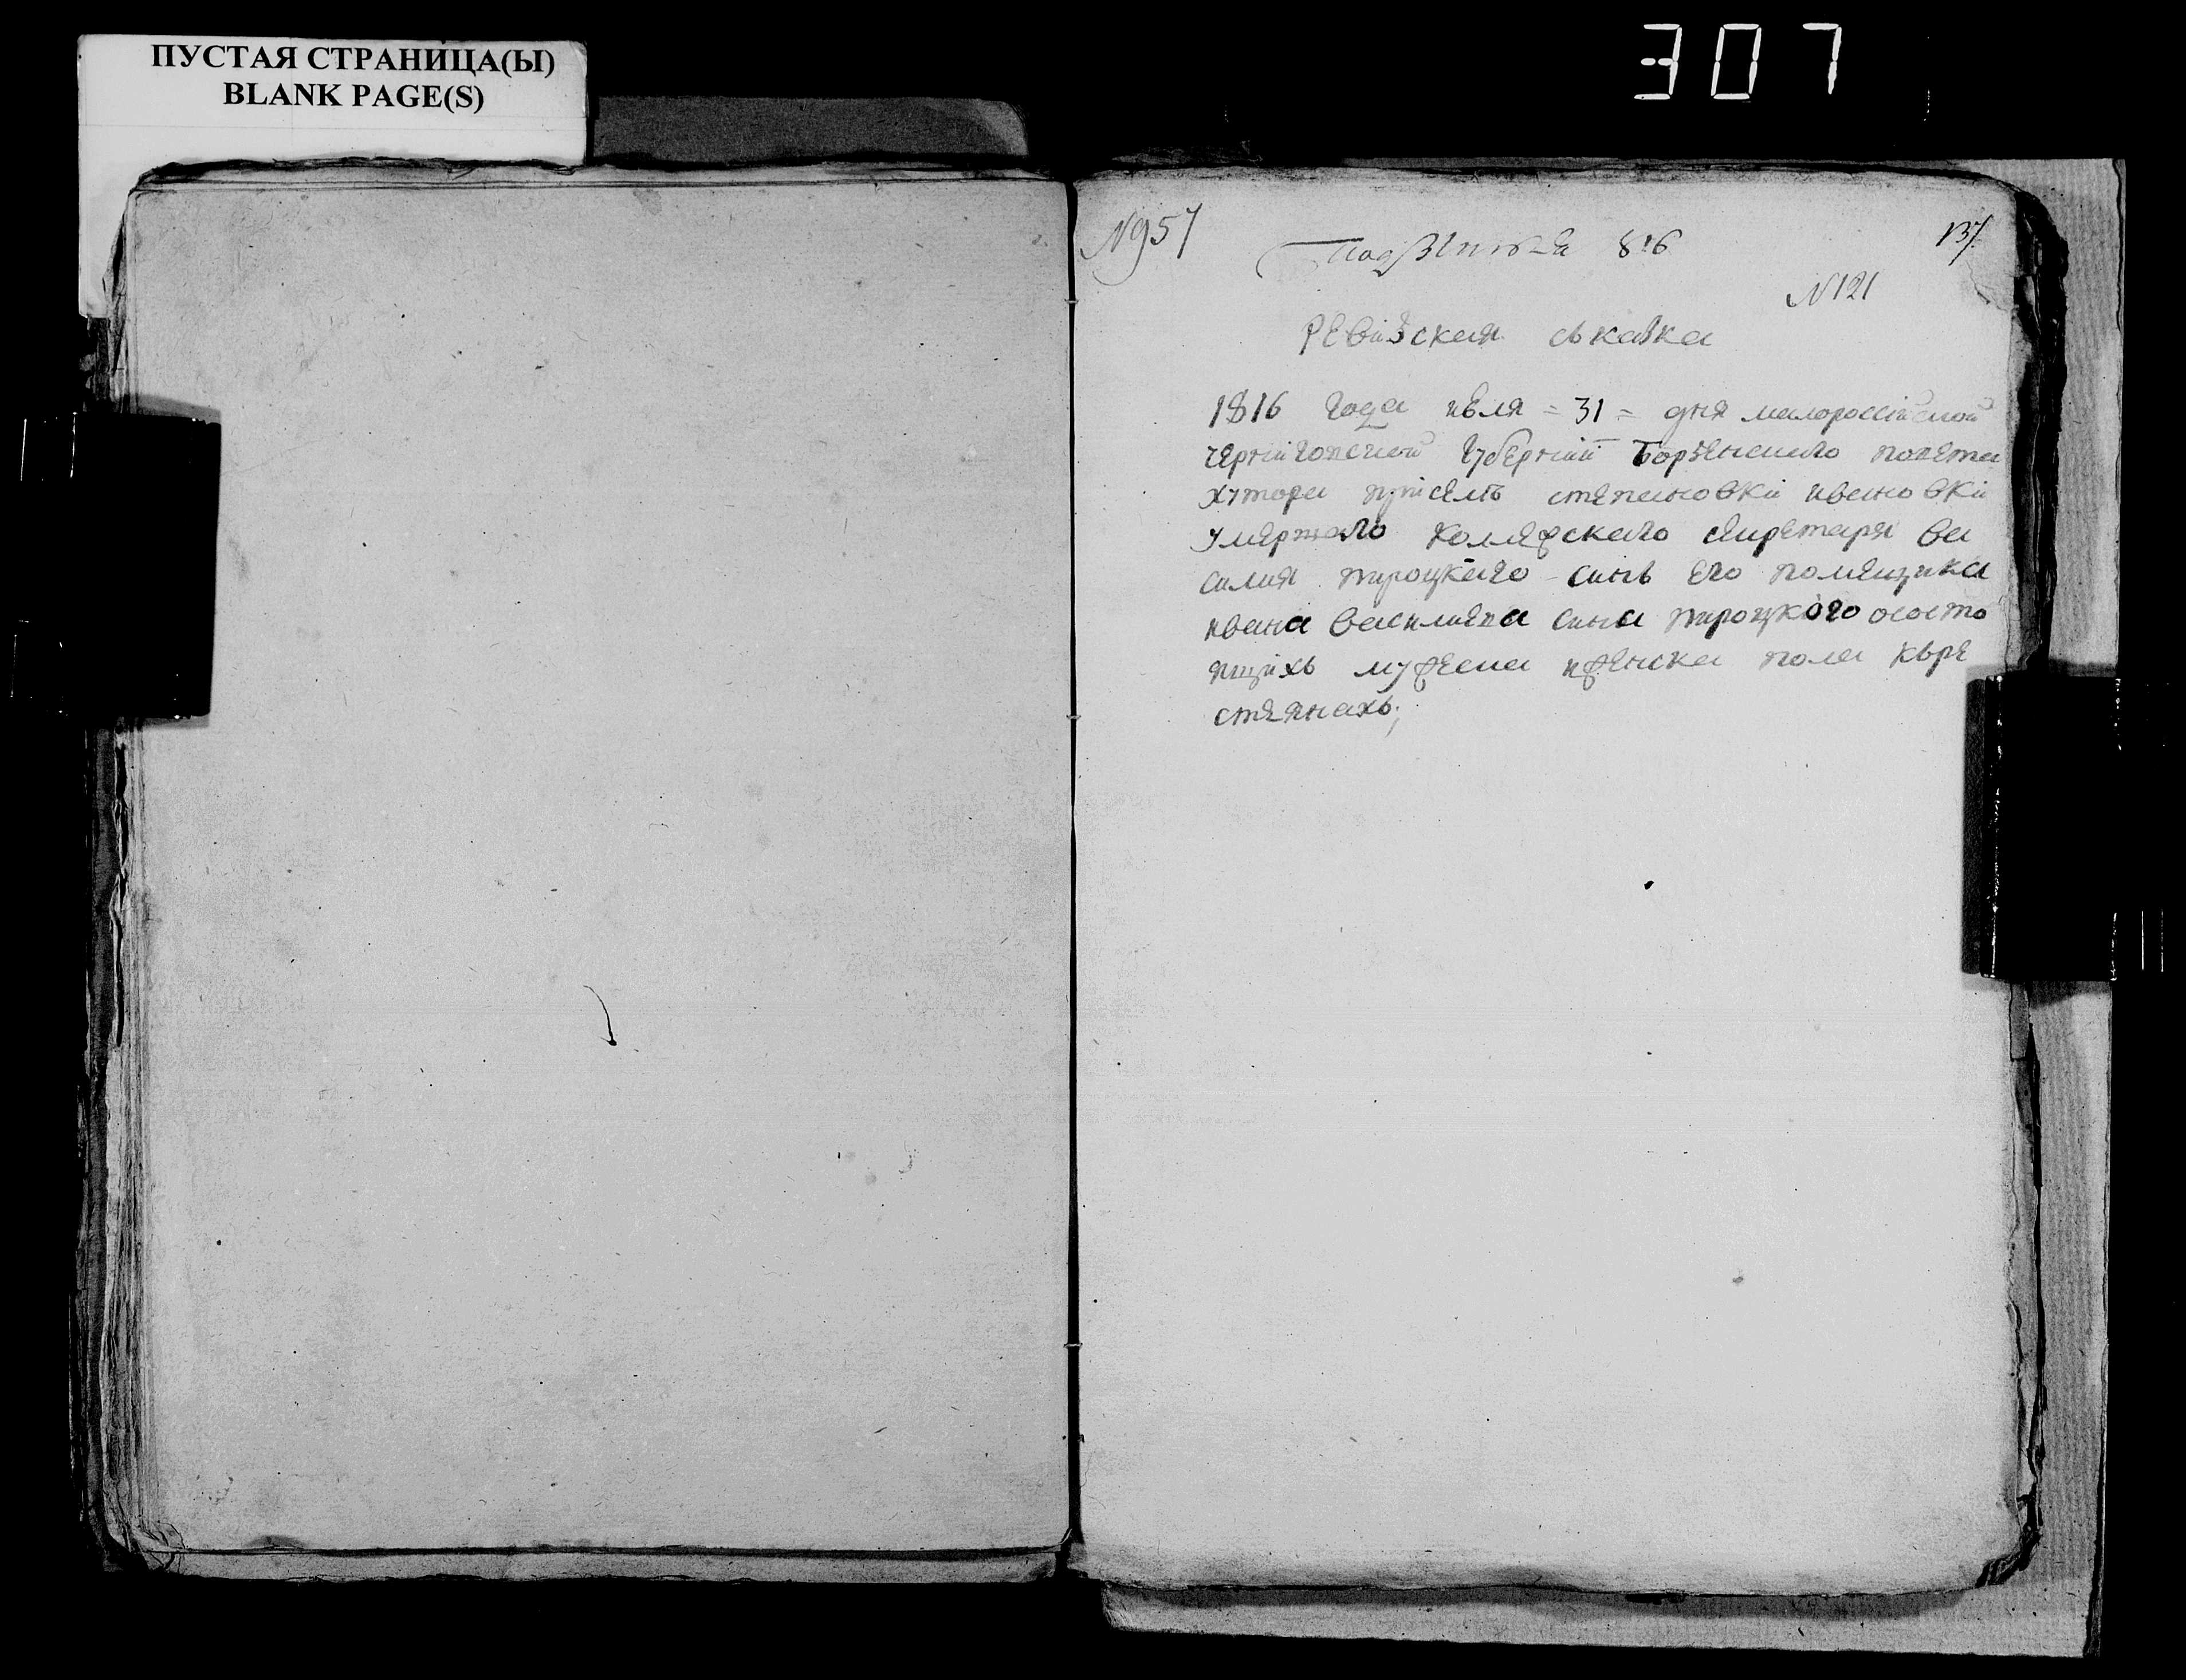 ПУСТАЯ СТРАНИЦА(Ы)
BLANK PAGE(S)
307
№957
816
137
№121
РЕвизская ськазка
1816 года июля = 31 = дня малороссійской
чернiиговской Губернiий Борзенского повета
хутора при селъ степановкi ивановкi
умержаго колежского секретаря ва
силия троцкаго синъ его помещика
ивана василиева сина троцкого ососто
ящихъ мужеска иженска пола кьре
стеянахъ;